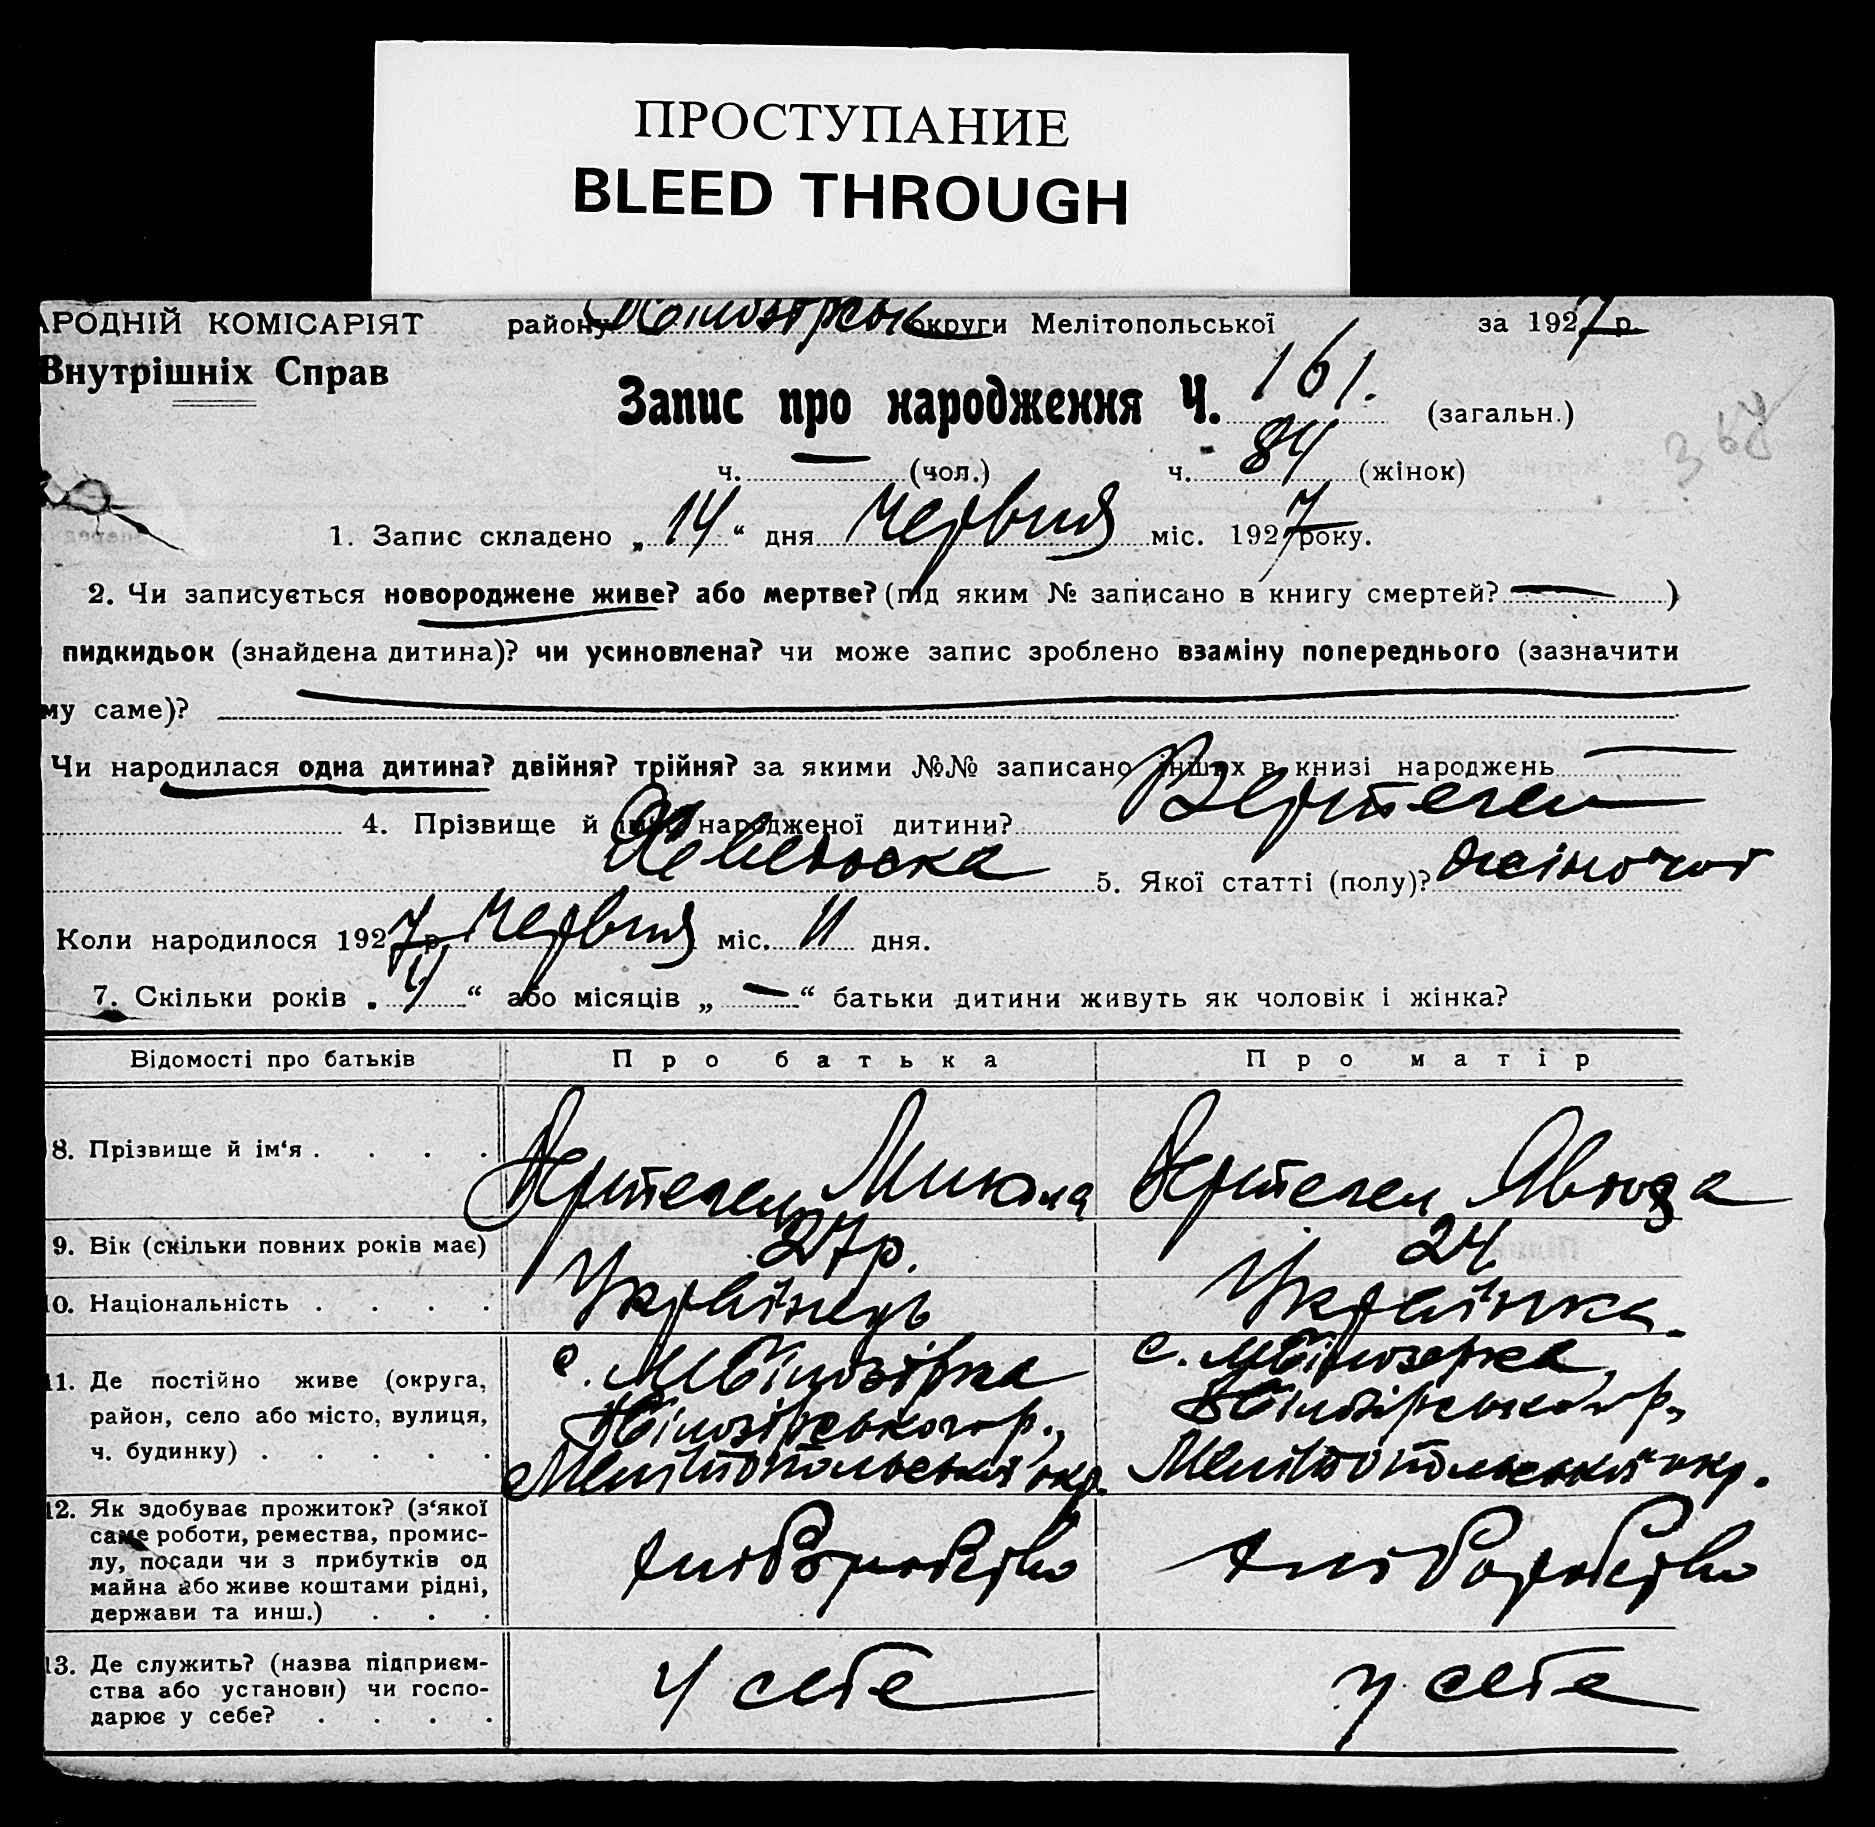 ПРОСТУПАНИЕ
BLEED THROUGH
АРОДНІЙ КОМІСАРІЯТ району округи Мелітопольської за 1927 р.
Внутрішніх Справ
Запис про народження Ч. 161. (загальн.)
368
ч. — (чол.) ч. 84 (жінок)
1. Запис складено „14“ дня червня міс. 1927 року.
2. Чи записується новороджене живе? або мертве? (під яким № записано в книгу смертей? — )
пидкидьок (знайдена дитина)? чи усиновлена? чи може запис зроблено взаміну попереднього (зазначити
му саме)?
Чи народилася одна дитина? двійня? трійня? за якими №№ записано інших в книзі народжень —
4. Прізвище й ім'я народженої дитини? Вертегел
5. Якої статті (полу)? жіночої
Коли народилося 1927 р. червня міс. 11 дня.
7. Скільки років „4“ або місяців „—“ батьки дитини живуть як чоловік і жінка?
Відомості про батьків Про батька Про матір
8. Прізвище й ім'я . . . . Вертегел Микола Вертегел
9. Вік (скільки повних років має) 27 р. 24
10. Національність . . . . Українець Українка.
11. Де постійно живе (округа, с. М Білозірка с. М Білозерка,
район, село або місто, вулиця, Білозірського р., Білозірського р.,
ч. будинку) . . . . . Мелітопольської окр. Мелітопольської окр.
12. Як здобуває прожиток? (з'якої
саме роботи, ремества, промис-
лу, посади чи з прибутків од хліборобство хліборобство
майна або живе коштами рідні,
держави та инш.) . . .
13. Де служить? (назва підприєм-
ства або установи) чи госпо- у себе у себе
дарює у себе? . . . .